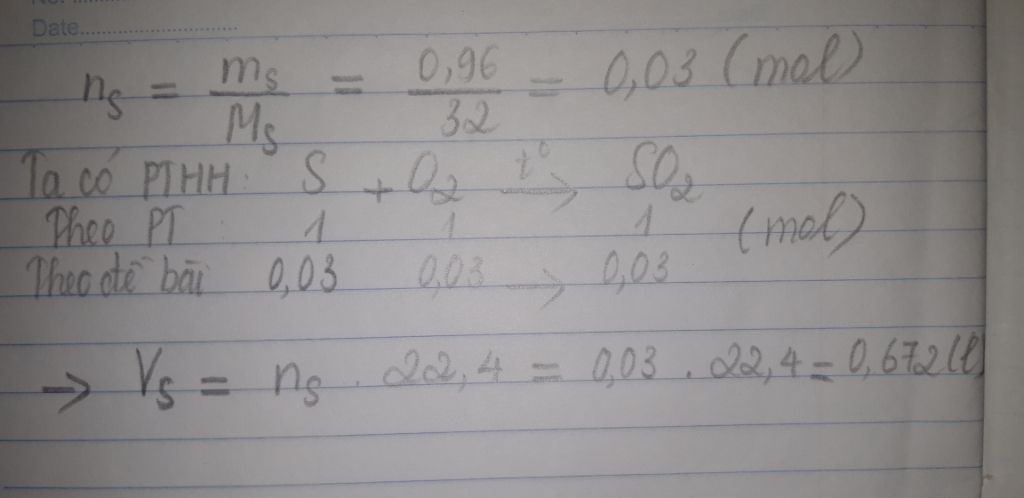 Date...
n_S = m_S / M_S = 0,96 / 32 = 0,03 (mol)
Ta có PTHH: S + O₂ t° → SO₂
Theo PT 1 1 1 (mol)
Theo đề bài 0,03 0,03 → 0,03
→ V_S = n_S . 22,4 = 0,03 . 22,4 = 0,672 (l)